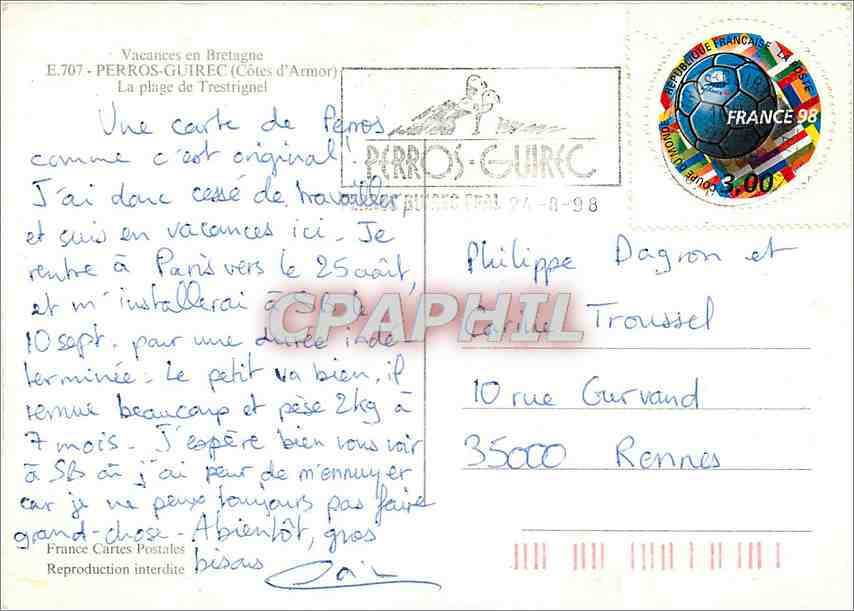 Vacances en Bretagne
E.707 - PERROS-GUIREC (Côtes d'Armor)
La plage de Trestrignel
Une carte de Perros
comme c'est original!
J'ai donc cessé de travailler
et suis en vacances ici - Je
rentre à Paris vers le 25 août,
et m'installerai à SB le
10 sept. pour une durée indé-
terminée - Le petit va bien, il
remue beaucoup et pèse 2kg à
7 mois - J'espère bien vous voir
à SB où j'ai peur de m'ennuyer
car je ne peux toujours pas faire
grand-chose - A bientôt, gros
bisous
France Cartes Postales
Reproduction interdite
PERROS-GUIREC
24-8-98
RÉPUBLIQUE FRANÇAISE LA POSTE
FRANCE 98
COUPE DU MONDE
3,00
Philippe Dagron et
Carine Troussel
10 rue Gurvand
35000 Rennes
CPAPHIL